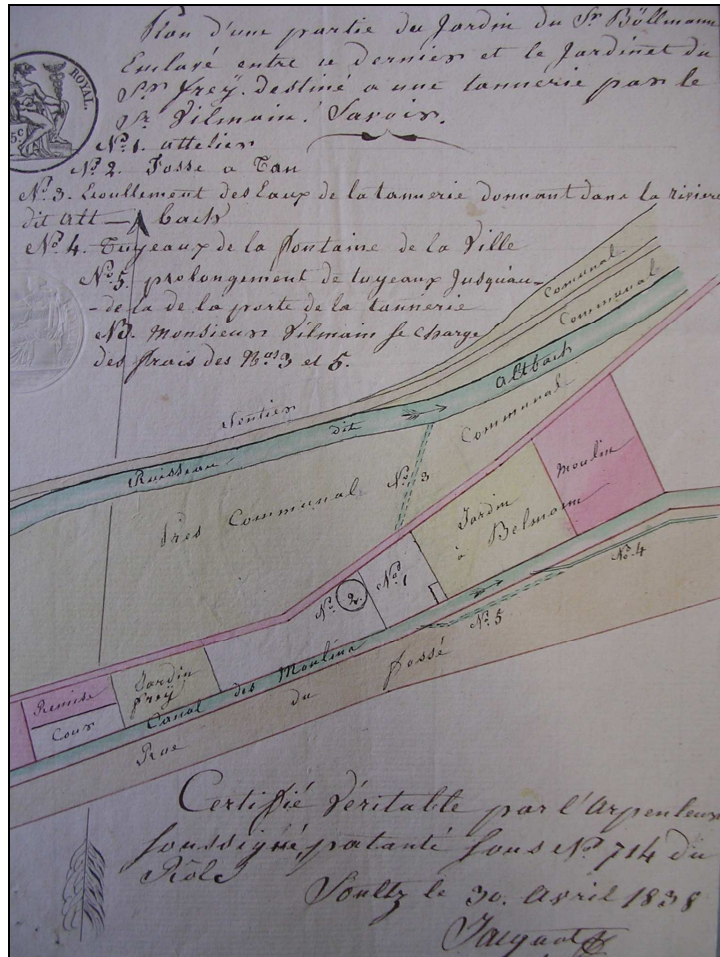 Plan d'une partie du Jardin du Sr Böllmann
Enclavé entre ce dernier et le Jardinet du
Sr freÿ. destiné a une tannerie par le
Sr Vilmain. Savoir.
ROYAL.
5c
No 1. attelier
No 2. Fosse a Tan
No 3. Ecoullement des Eaux de la tannerie donnant dans la riviere
dit Alt-bach
No 4. Tuyeaux de la fontaine de la Ville
No 5. prolongement de tuyeaux Jusquau-
-de la de la porte de la tannerie
Monsieur Vilmain se Charge
des frais des Nos 3 et 5.
Communal
Communal
Sentier
Ruisseau dit Altbach
Communal
Prés Communal
No 3
Moulin
Jardin
à Belmann
No 4
No 1
No 2.
No 5
Jardin
freÿ
Remise
Cour
Canal des Moulins
Rue du fossé
Certifié Véritable par l'Arpenteur
soussigné, patanté sous No 714 du
Rôle
Soultz le 30. Avril 1838
Jacquot